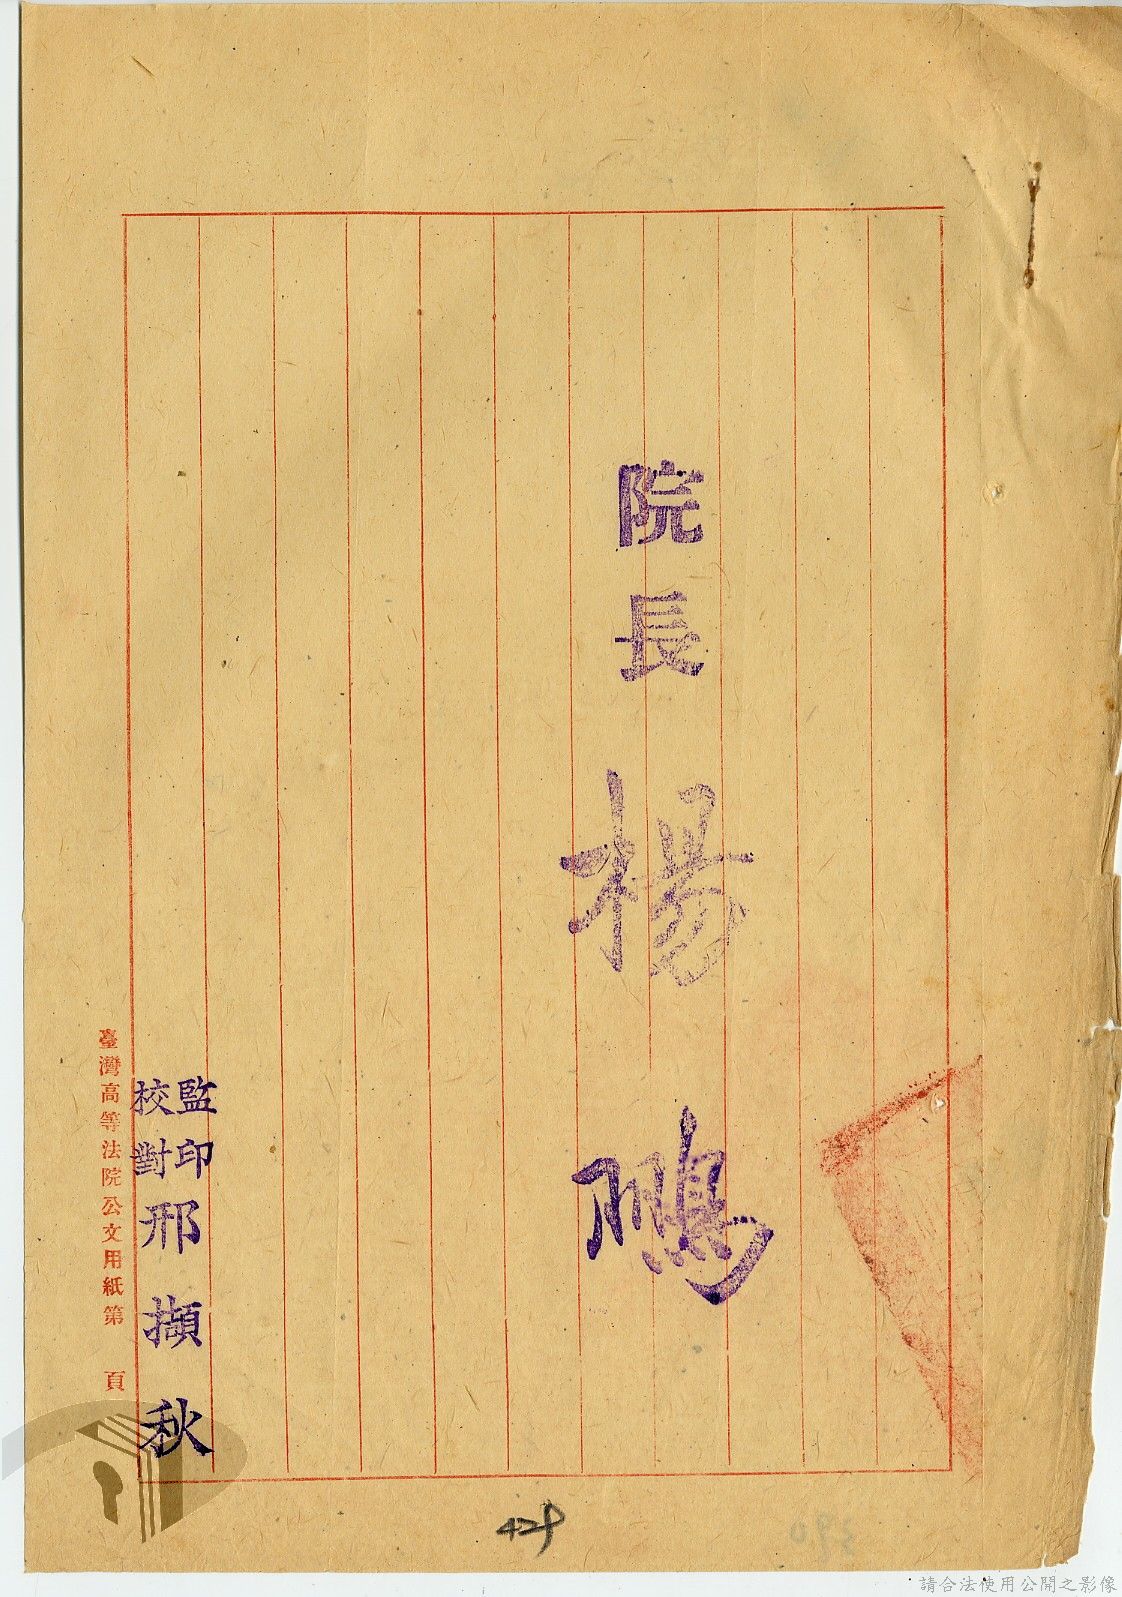 院長 楊鵬
監印
校對 邢擷秋
臺灣高等法院公文用紙第 頁
429
390
請合法使用公開之影像